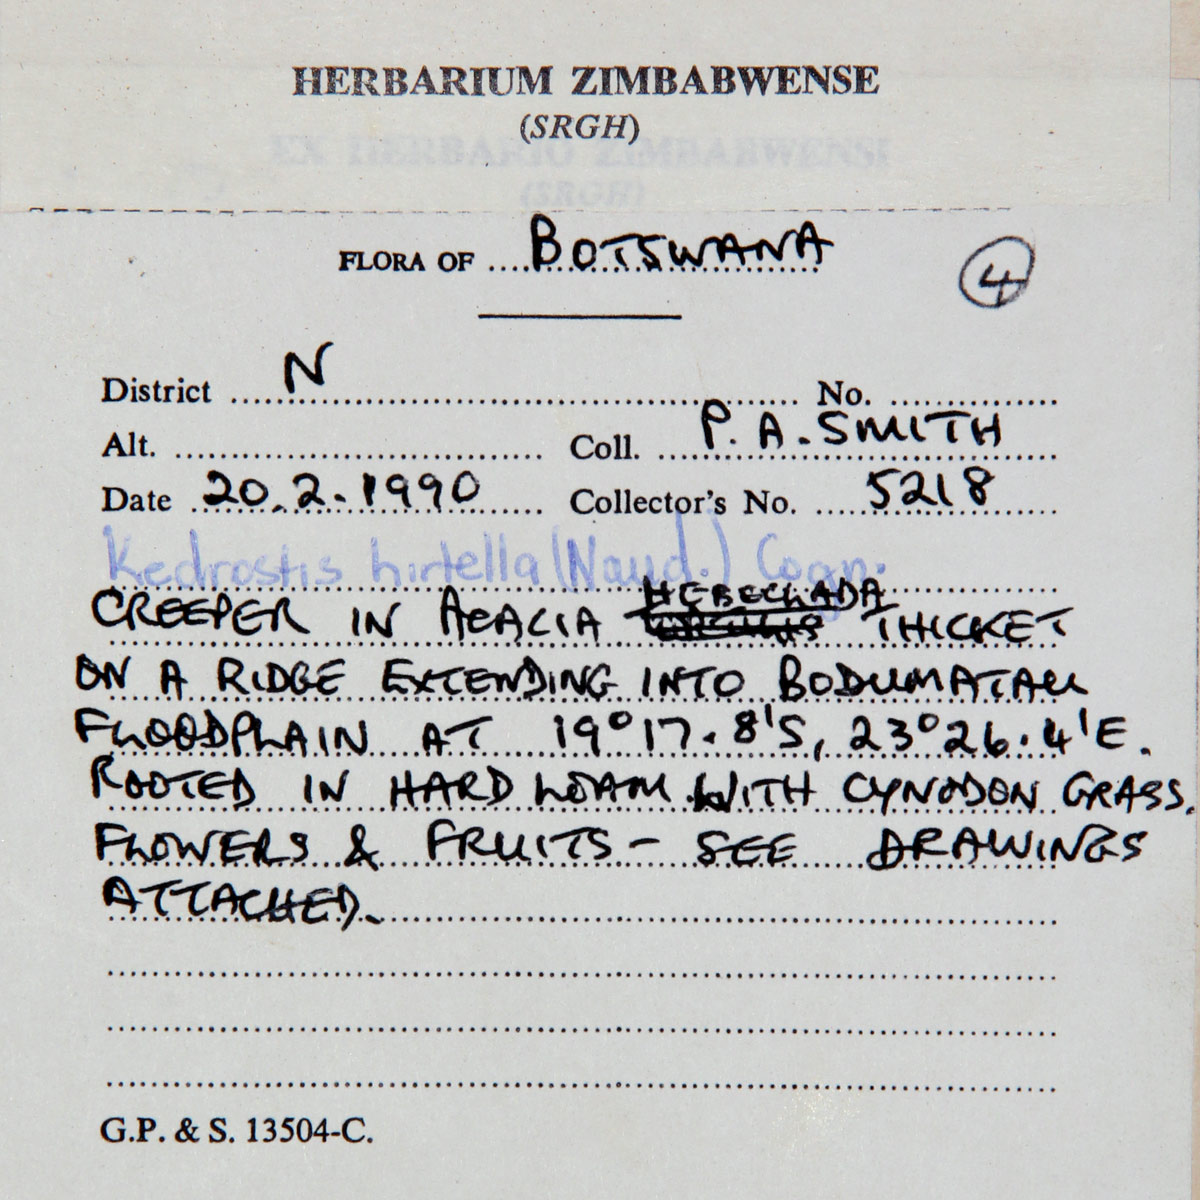 HERBARIUM ZIMBABWENSE
(SRGH)
EX HERBARIO ZIMBABWENSI
(SRGH)
FLORA OF BOTSWANA
4
District N No.
Alt. Coll. P. A. SMITH
Date 20.2.1990 Collector's No. 5218
Kedrostis hirtella (Naud.) Cogn.
HEBECLADA
CREEPER IN ACACIA THICKET
ON A RIDGE EXTENDING INTO BODUMATAU
FLOODPLAIN AT 19°17.8'S, 23°26.4'E.
ROOTED IN HARD LOAM WITH CYNODON GRASS.
FLOWERS & FRUITS - SEE DRAWINGS
ATTACHED.
G.P. & S. 13504-C.